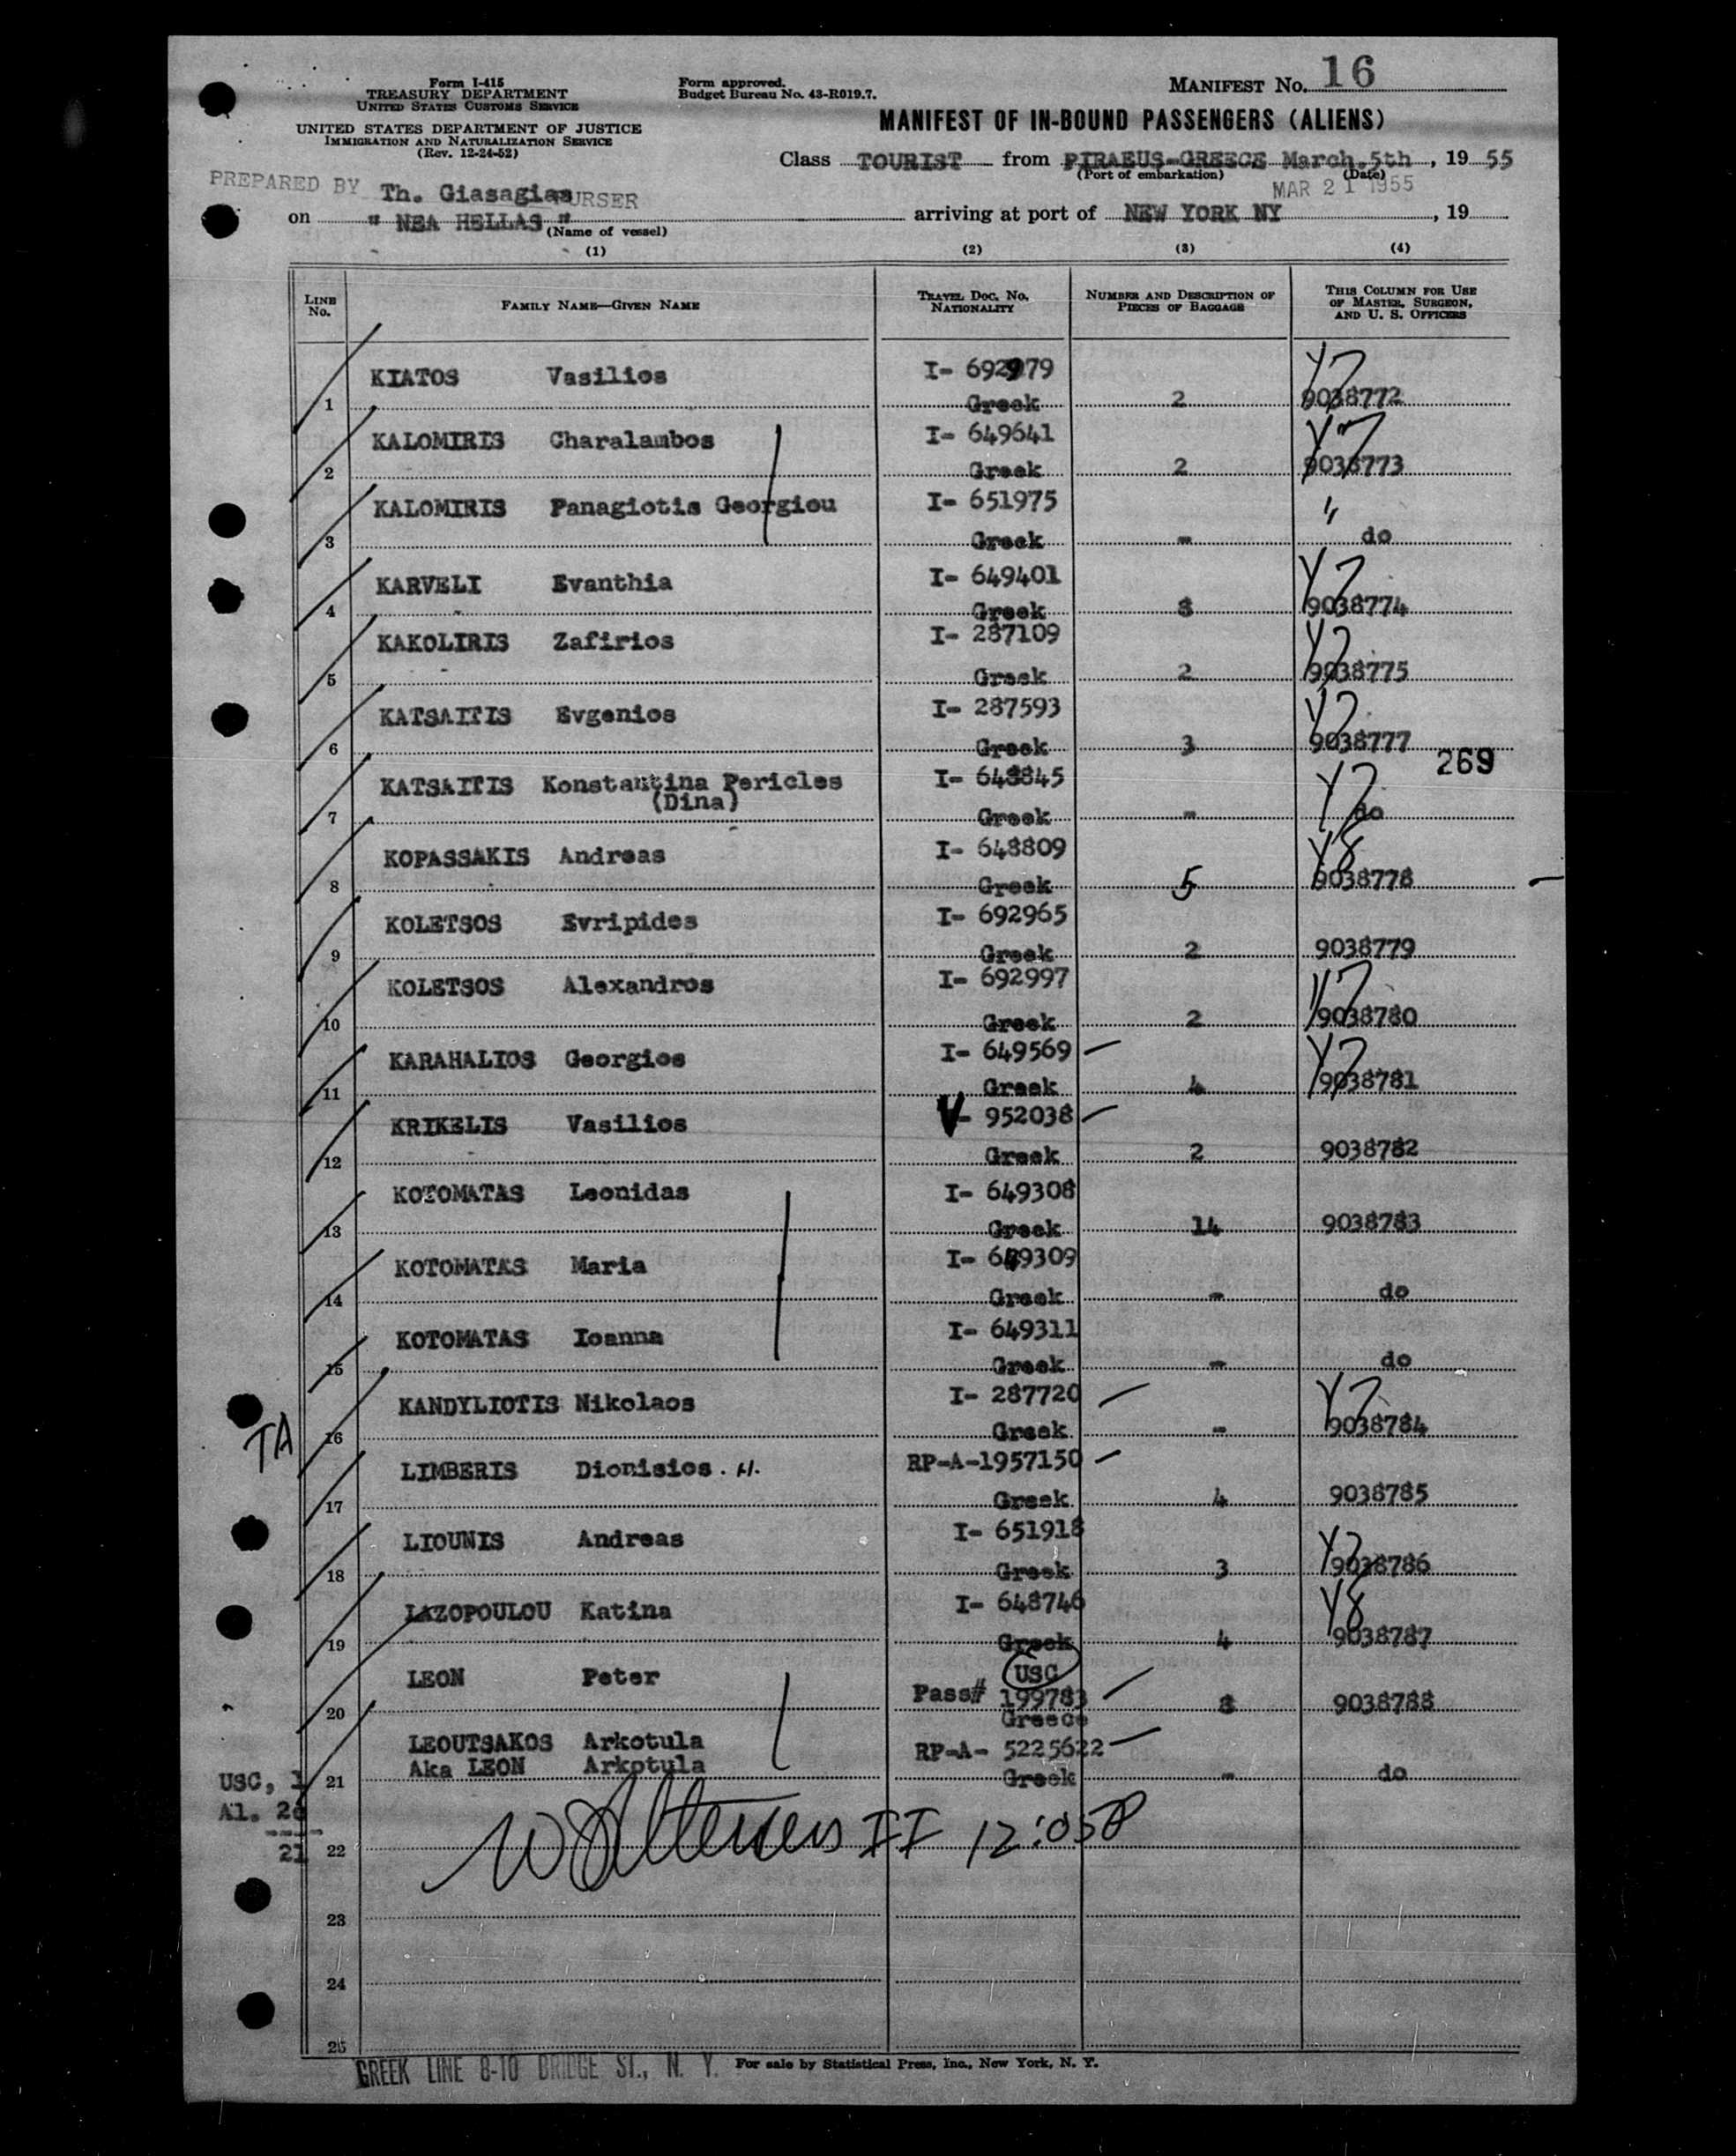 Form I-415
TREASURY DEPARTMENT
UNITED STATES CUSTOMS SERVICE
UNITED STATES DEPARTMENT OF JUSTICE
IMMIGRATION AND NATURALIZATION SERVICE
(Rev. 12-24-52)
Form approved.
Budget Bureau No. 43-R019.7.
MANIFEST No. 16
MANIFEST OF IN-BOUND PASSENGERS (ALIENS)
Class TOURIST from PIRAEUS-GREECE March.5th, 19 55
(Port of embarkation) (Date)
PREPARED BY Th. Giasagias PURSER
MAR 21 1955
on " NEA HELLAS " arriving at port of NEW YORK NY, 19
(Name of vessel)
(1) (2) (3) (4)
LINE No. FAMILY NAME—GIVEN NAME TRAVEL DOC. No. NATIONALITY NUMBER AND DESCRIPTION OF PIECES OF BAGGAGE THIS COLUMN FOR USE OF MASTER, SURGEON, AND U. S. OFFICERS
KIATOS Vasilios I- 692979 Y7
1 Greek 2 9038772
KALOMIRIS Charalambos I- 649641 Y7
2 Greek 2 9038773
KALOMIRIS Panagiotis Georgiou I- 651975 "
3 Greek - do
KARVELI Evanthia I- 649401 Y7
4 Greek 9038774
KAKOLIRIS Zafirios I- 287109 Y7
5 Greek 2 9038775
KATSAITIS Evgenios I- 287593 Y7
6 Greek 3 9038777
269
KATSAITIS Konstantina Pericles I- 648845 Y7
(Dina)
7 Greek - do
KOPASSAKIS Andreas I- 648809 Y8
8 Greek 5 9038778
KOLETSOS Evripides I- 692965
9 Greek 2 9038779
KOLETSOS Alexandros I- 692997 Y7
10 Greek 2 9038780
KARAHALIOS Georgios I- 649569 Y7
11 Greek 4 9038781
KRIKELIS Vasilios V- 952038
12 Greek 2 9038782
KOTOMATAS Leonidas I- 649308
13 Greek 14 9038783
KOTOMATAS Maria I- 649309
14 Greek - do
KOTOMATAS Ioanna I- 649311
15 Greek - do
KANDYLIOTIS Nikolaos I- 287720 Y7
TA 16 Greek - 9038784
LIMBERIS Dionisios . H. RP-A-1957150
17 Greek 4 9038785
LIOUNIS Andreas I- 651918 Y7
18 Greek 3 9038786
LAZOPOULOU Katina I- 648746 Y8
19 Greek 4 9038787
LEON Peter USC
Pass# 199783
20 Greece 9038788
LEOUTSAKOS Arkotula RP-A- 5225622
Aka LEON Arkotula
21 Greek - do
USC, 1
Al. 20
21
II 12:05P
22
23
24
25
GREEK LINE 8-10 BRIDGE ST., N. Y.
For sale by Statistical Press, Inc., New York, N. Y.